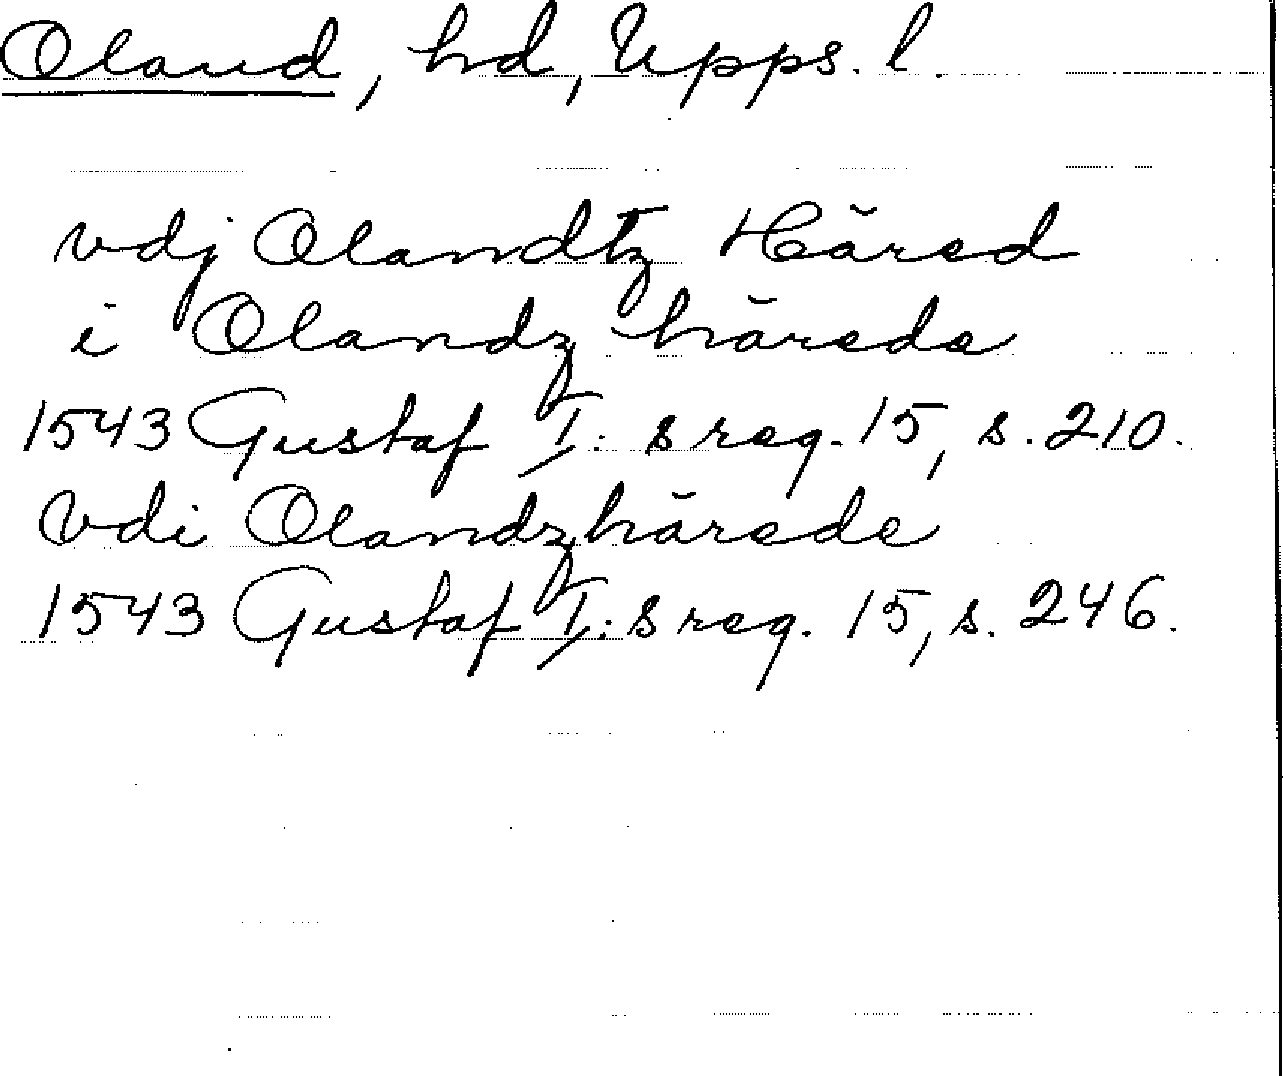 Oland, hd, Upps. l.
vdj Olandtz Häred
i Olandz härede
1543 Gustaf I:s reg. 15, s. 210.
Vdi Olandzhärede
1543 Gustaf I:s reg. 15, s. 246.